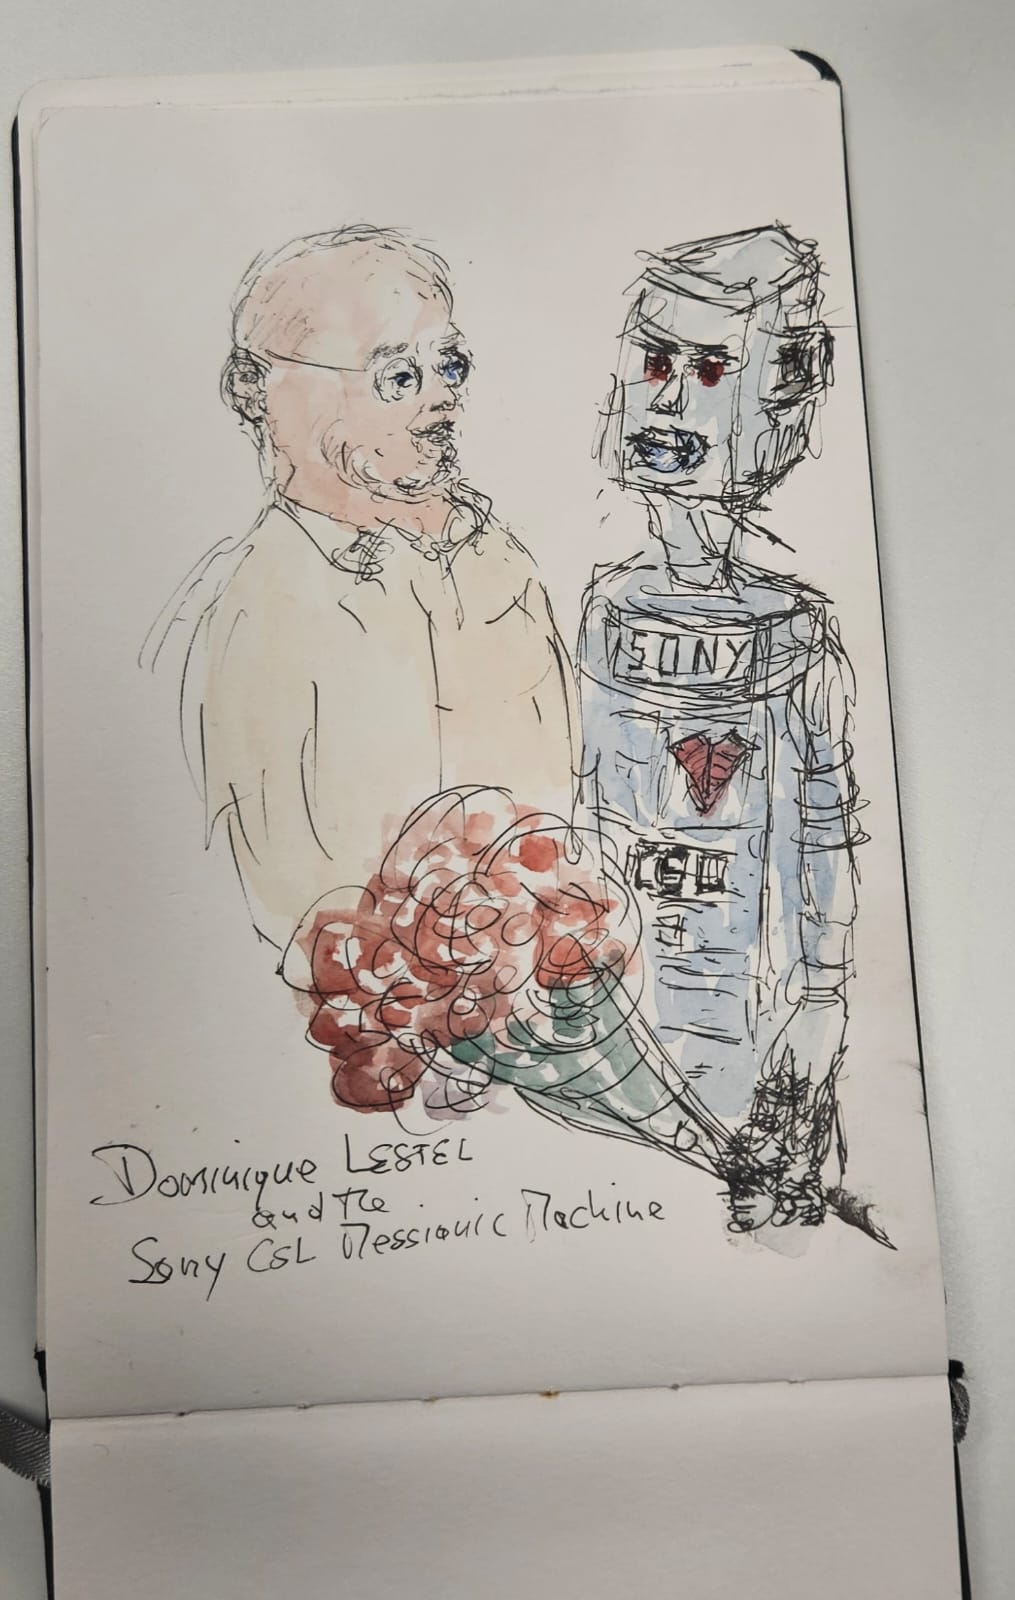 SONY
Dominique LESTEL
and the
Sony CSL Messianic Machine